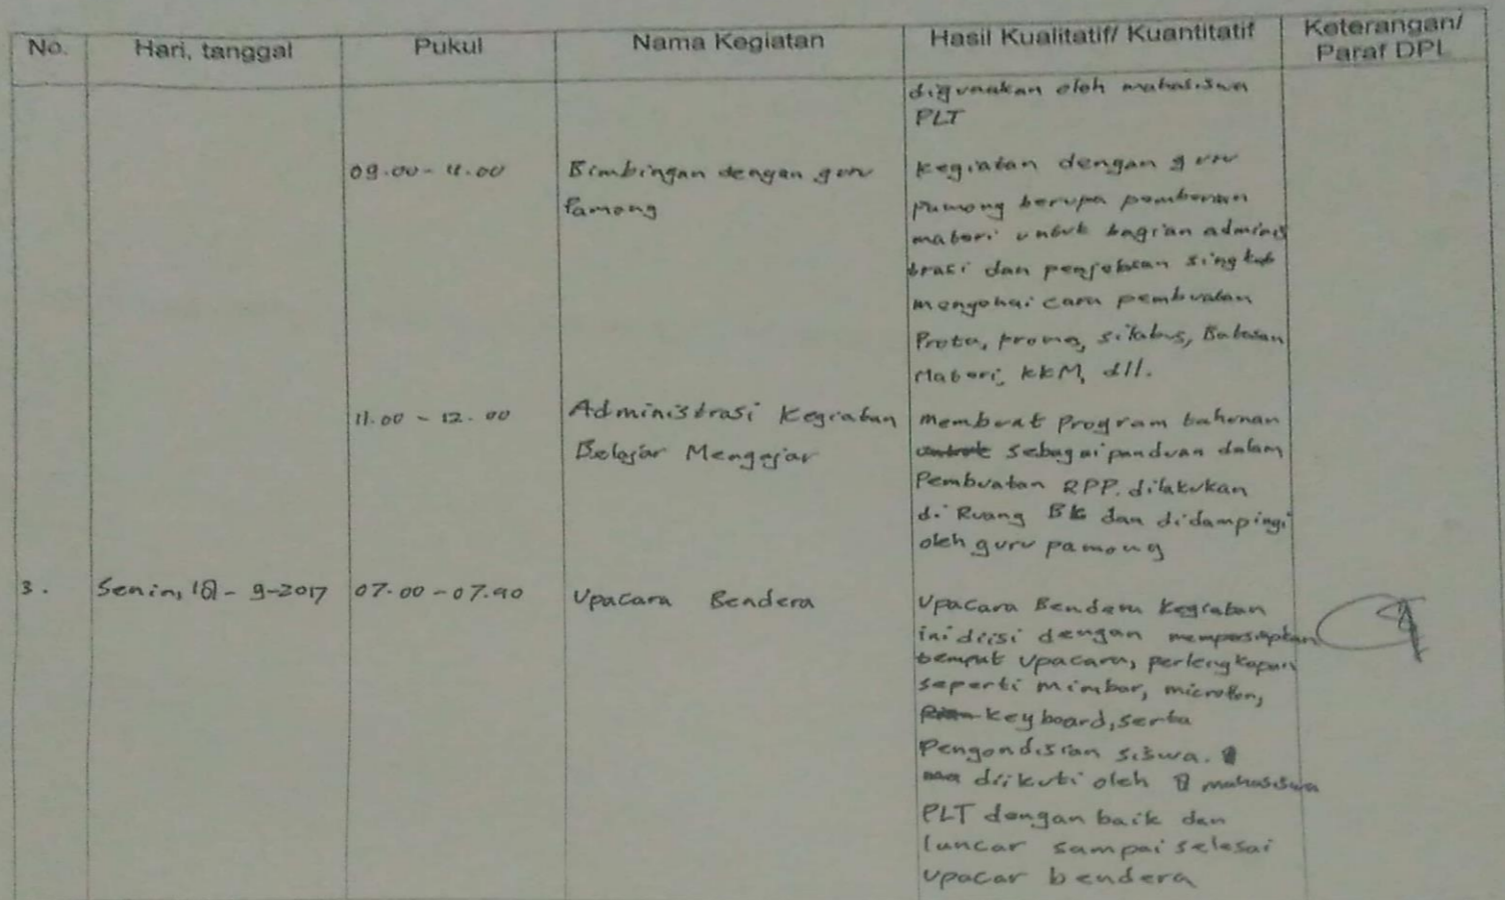 No.
Hari, tanggal
Pukul
Nama Kegiatan
Hasil Kualitatif/ Kuantitatif
Keterangan/
Paraf DPL
digunakan oleh mahasiswa
PLT
09.00 - 11.00
Bimbingan dengan guru
Pamong
Kegiatan dengan guru
Pamong berupa pemberian
materi untuk bagian adminis
trasi dan penjelasan singkat
mengenai cara pembuatan
Prota, promes, silabus, Batasan
Materi, KKM, dll.
11.00 - 12.00
Administrasi Kegiatan
Belajar Mengajar
Membuat Program tahunan
sebagai panduan dalam
Pembuatan RPP. dilakukan
di Ruang BK dan didampingi
oleh guru pamong
3.
Senin, 18 - 9-2017
07.00 - 07.40
Upacara Bendera
Upacara Bendera Kegiatan
ini diisi dengan mempersiapkan
tempat upacara, perlengkapan
seperti mimbar, microfon,
keyboard, serta
Pengondisian siswa.
diikuti oleh mahasiswa
PLT dengan baik dan
luncar sampai selesai
upacar bendera